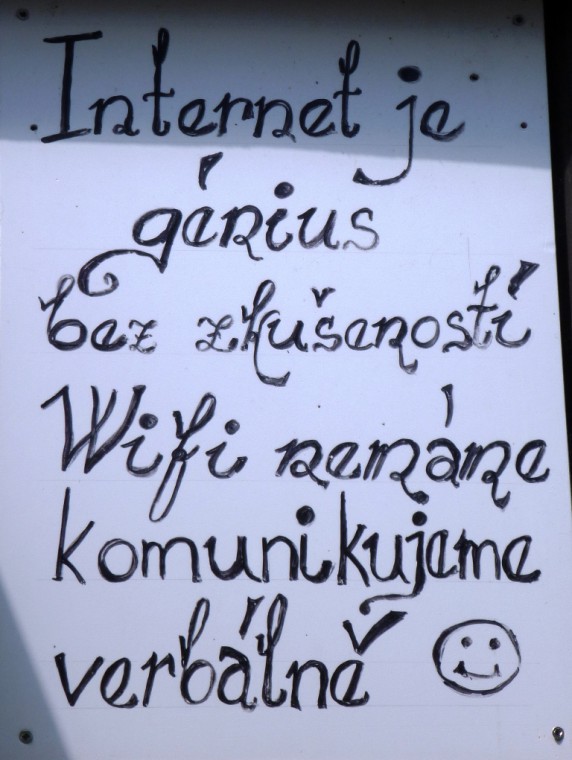 Internet je
génius
bez zkušeností
Wifi nemáme
komunikujeme
verbálně